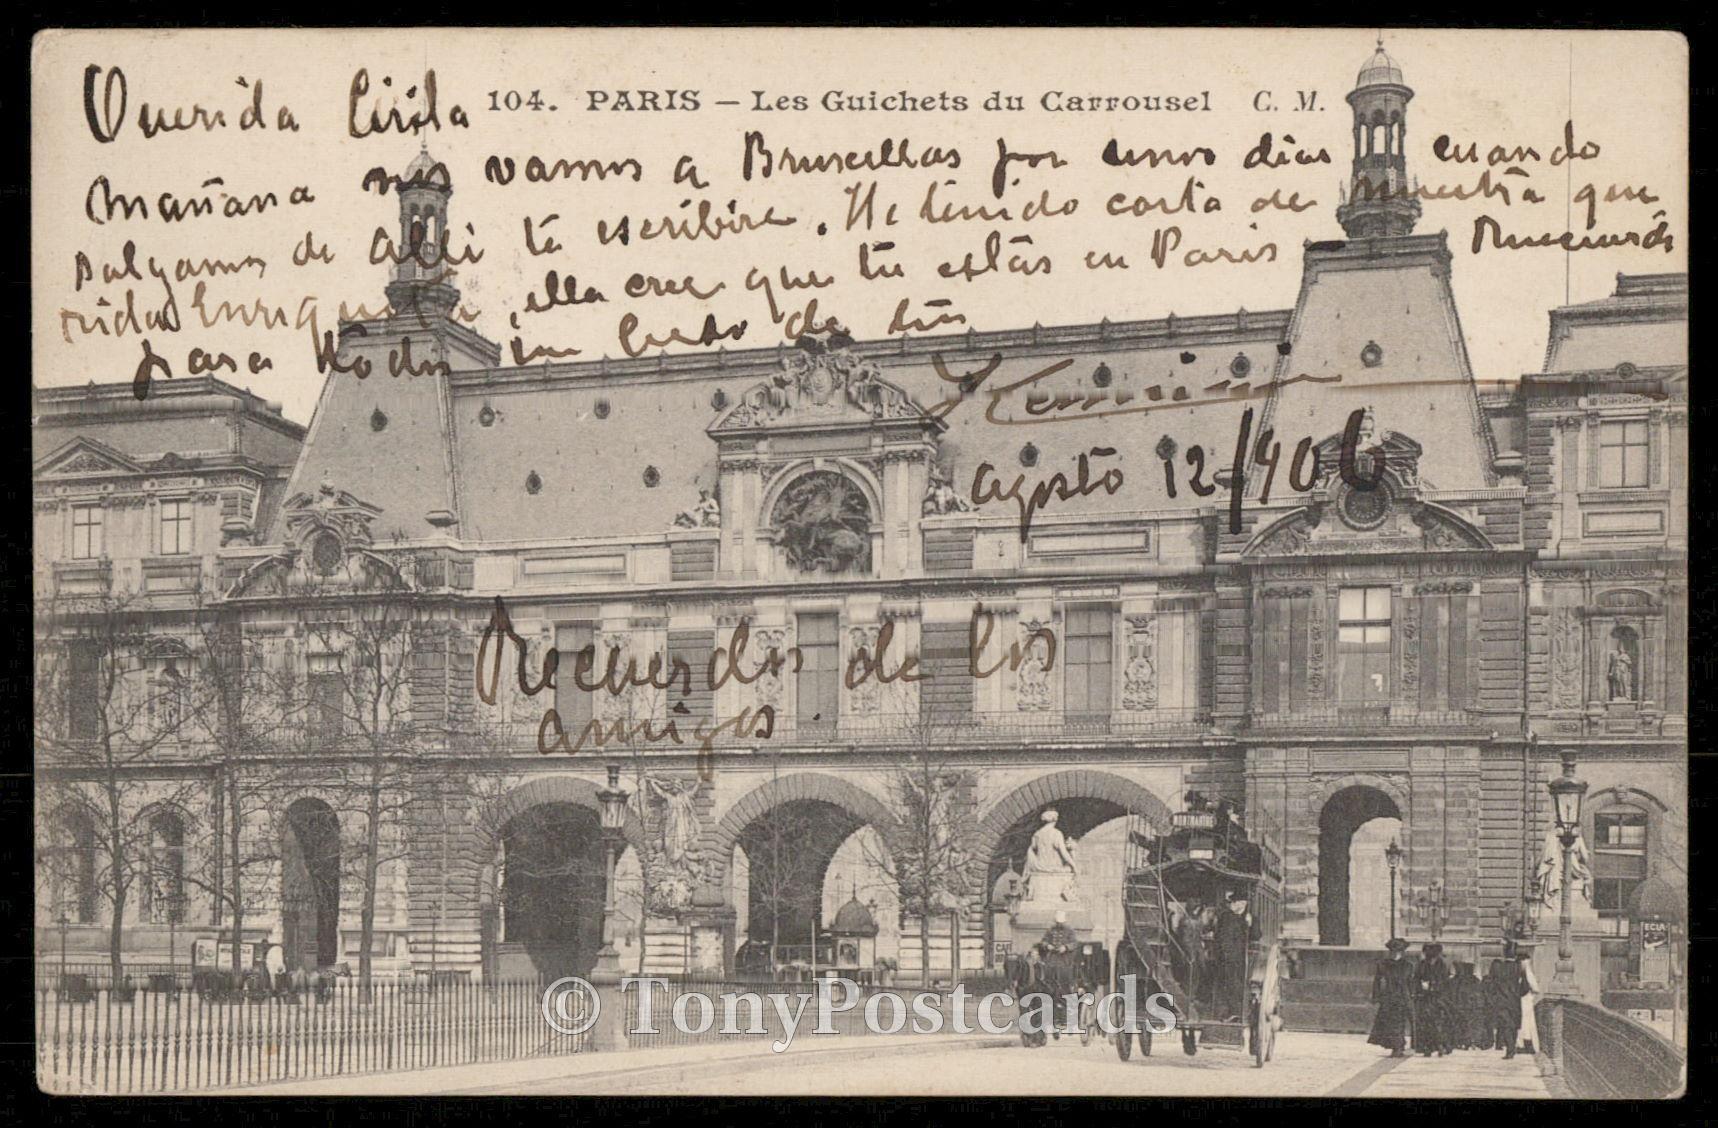 104. PARIS – Les Guichets du Carrousel C. M.
Querida Cirila
Mañana nos vamos a Bruscellas por unos dias cuando
salgamos de alli te escribire. He tenido carta de nuestra que
rida Enriqueta, ella cree que tu estás en Paris — Recuerdos
para todos un beso de tu
agosto 12/906
Recuerdos de los
amigos.
CAFE
ECIA
© TonyPostcards